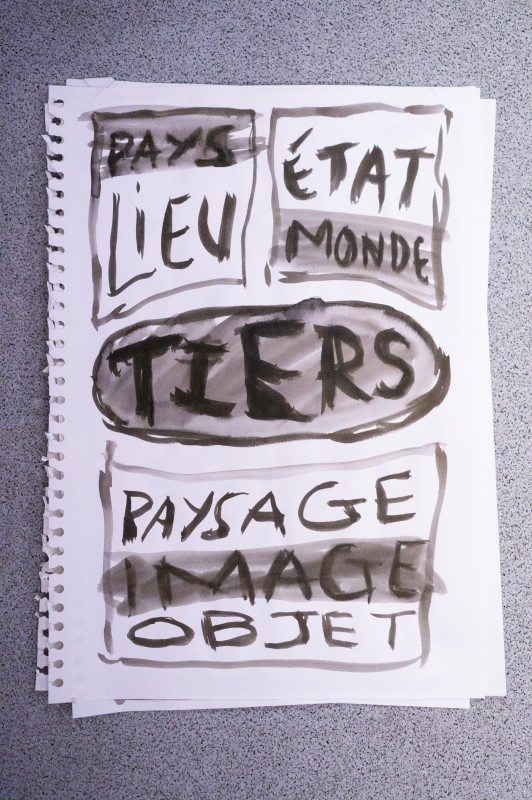 PAYS
LiEU
ÉTAT
MONDE
TIERS
PAYSAGE
IMAGE
OBJET